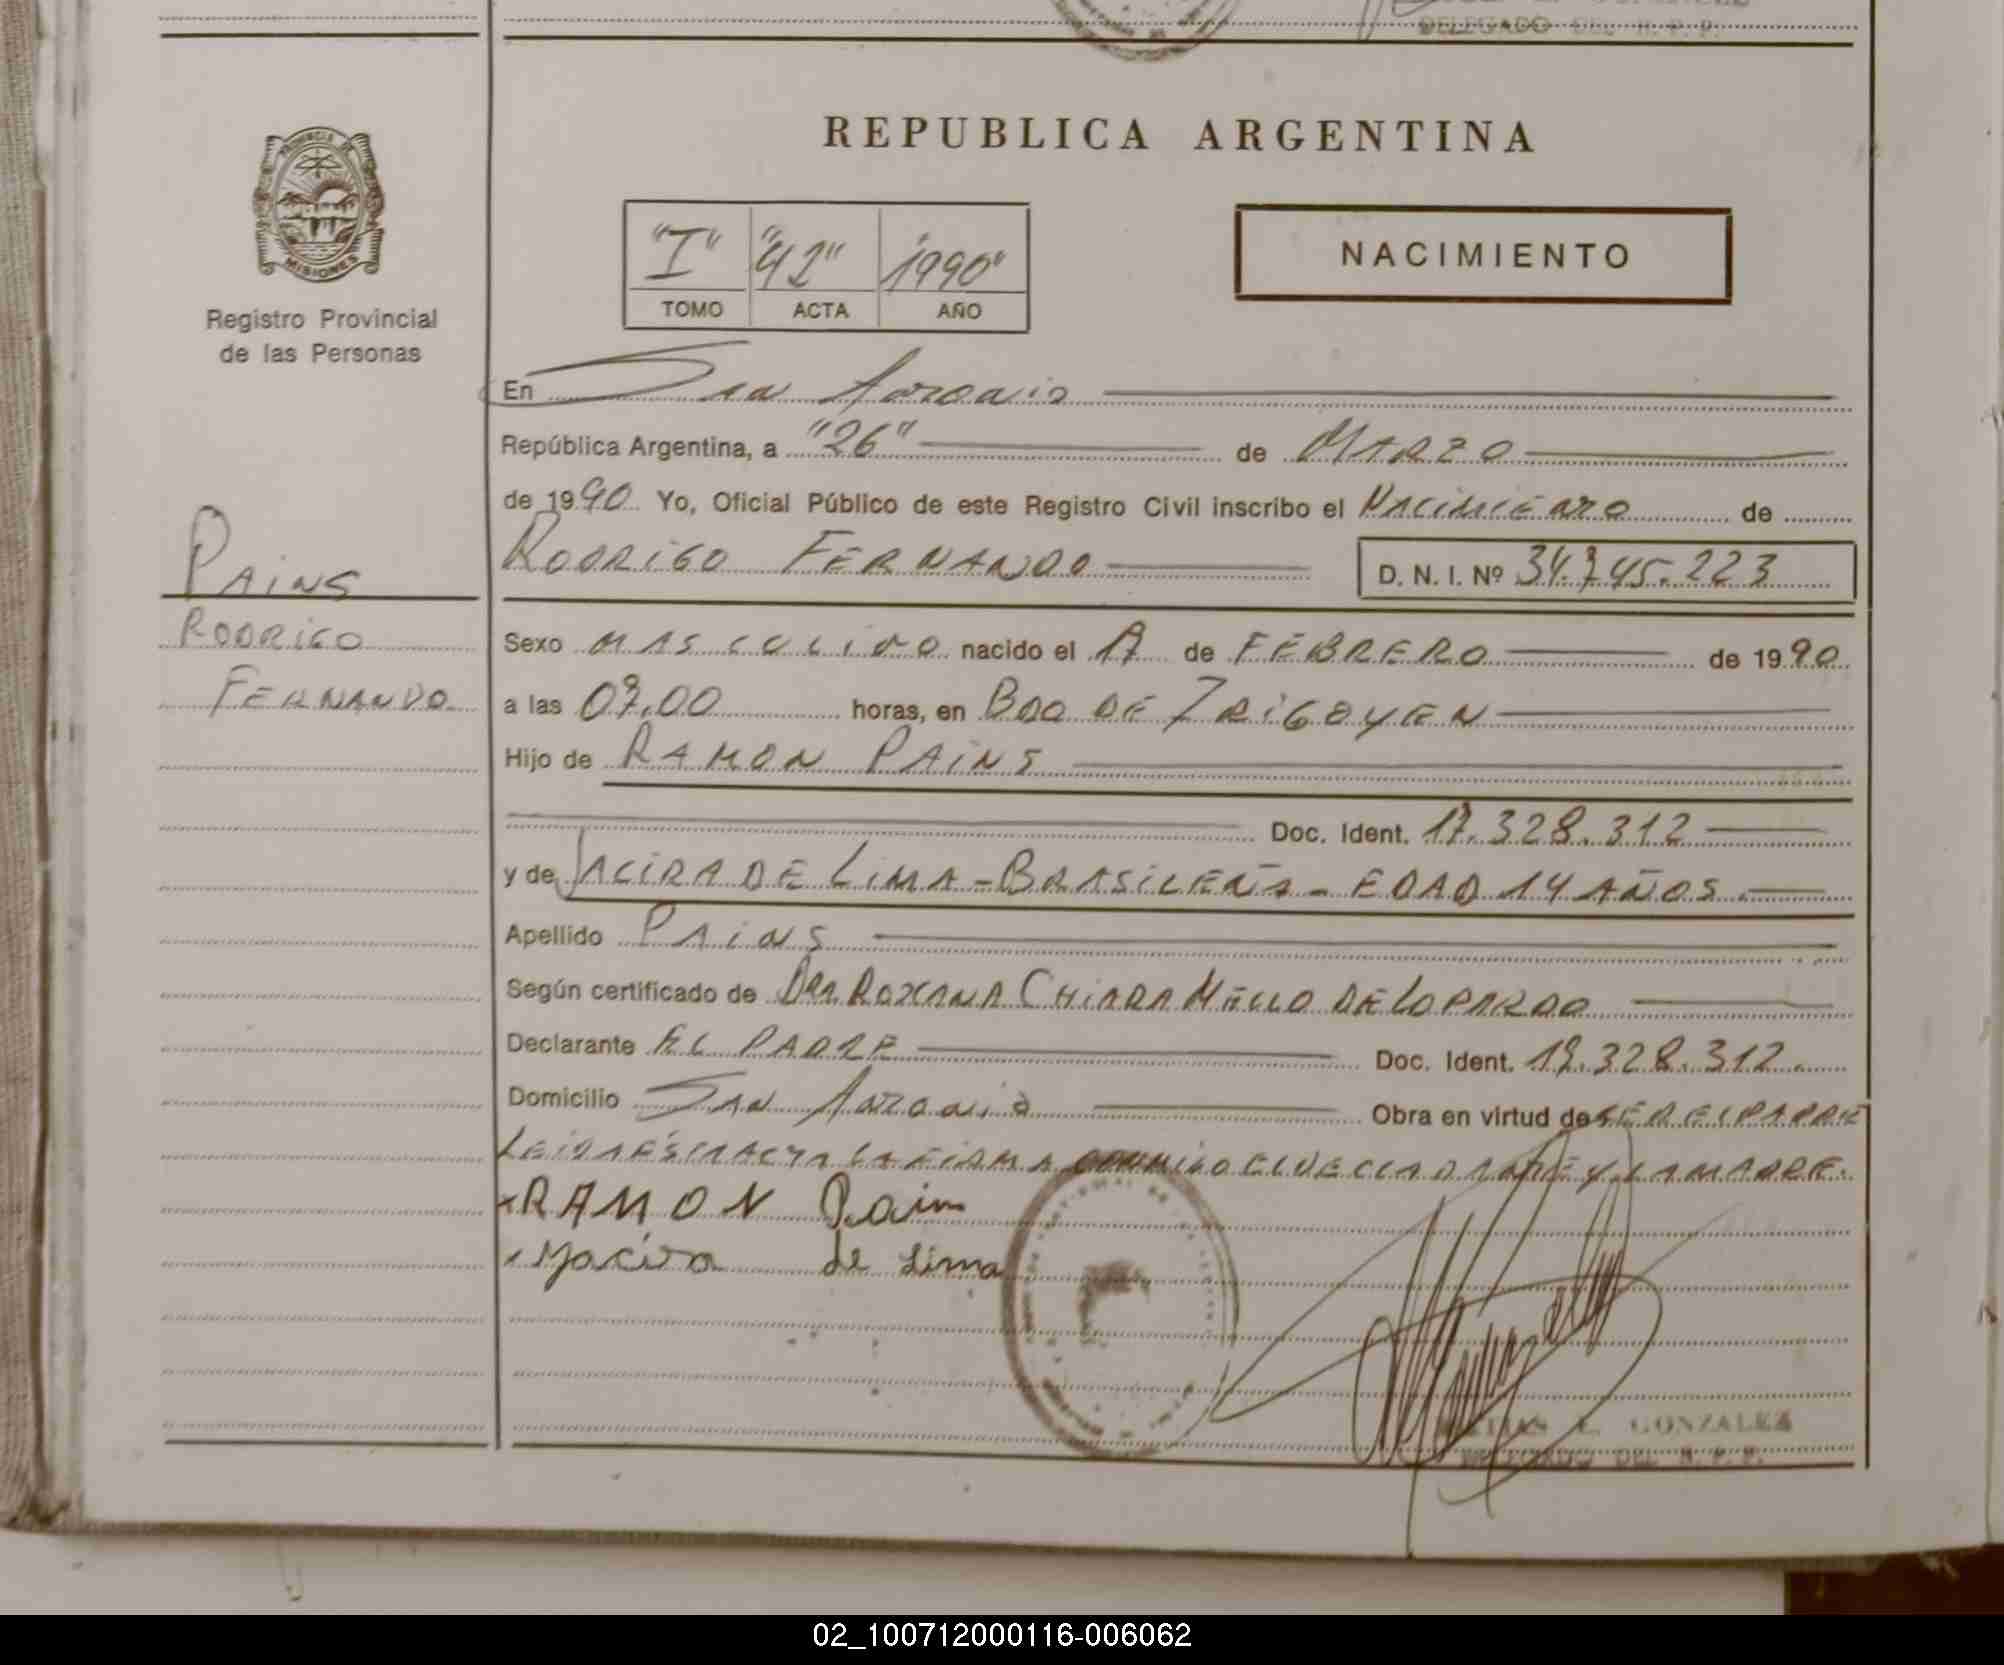 DELEGADO DEL R. P. P.
REPUBLICA ARGENTINA
PROVINCIA DE
MISIONES
Registro Provincial
de las Personas
"I" "42" "1990"
TOMO ACTA AÑO
NACIMIENTO
En San Antonio
República Argentina, a "26" de MARZO
de 1990 Yo, Oficial Público de este Registro Civil inscribo el NACIMIENTO de
RODRIGO FERNANDO D. N. I. Nº 34.745.223
PAINS
RODRIGO
FERNANDO
Sexo MASCULINO nacido el 17 de FEBRERO de 1990
a las 07,00 horas, en BDO DE IRIGOYEN
Hijo de RAMON PAINS
Doc. Ident. 17.328.312
y de JACIRA DE LIMA - BRASILEÑA - EDAD 14 AÑOS
Apellido PAINS
Según certificado de DRA ROXANA CHIARAMELLO DE LOPARDO
Declarante EL PADRE Doc. Ident. 17.328.312
Domicilio SAN ANTONIO Obra en virtud de SER EL PADRE
LEIDA ESTA ACTA LA FIRMA CONMIGO EL DECLARANTE Y LA MADRE.
RAMON Pains
Yacira de Lima
E. GONZALEZ
DELEGADO DEL R. P. P.
02_100712000116-006062